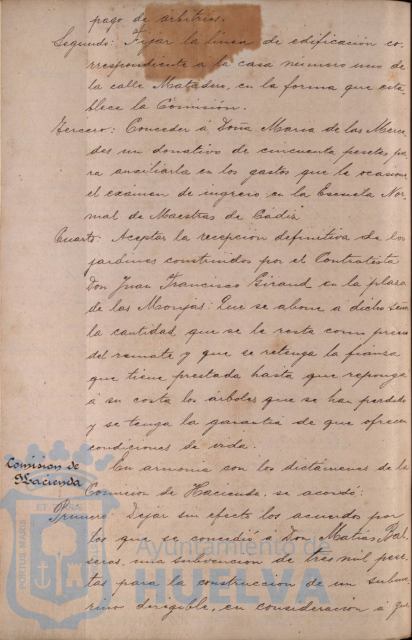 pago de arbitrios.
Segundo: Fijar la linea de edificación co-
rrespondiente a la casa número uno de
la calle Matadero, en la forma que esta-
blece la Comisión.
Tercero: Conceder á Doña Maria de las Merce-
des un donativo de cincuenta pesetas pa-
ra ausiliarla en los gastos que le ocasione
el exámen de ingreso en la Escuela Nor-
mal de Maestras de Cádiz.
Cuarto: Aceptar la recepción definitiva de los
jardines construidos por el Contratista
Don Juan Francisco Giraud en la plaza
de las Monjas: Que se abone á dicho Señor
la cantidad que se le resta como precio
del remate y que se retenga la fianza
que tiene prestada hasta que reponga
á su costa los árboles que se han perdido
y se tenga la garantia de que ofrecen
condiciones de vida.
Comision de
Hacienda
En armonia con los dictámenes de la
Comision de Hacienda, se acordó:
Primero: Dejar sin efecto los acuerdos por
los que se concedió á Don Matias Bal-
seros, una subvencion de tres mil pese-
tas para la construccion de un subma-
rino dirigible, en consideración á que
PORTUS MARIS ET
Ayuntamiento de
HUELVA